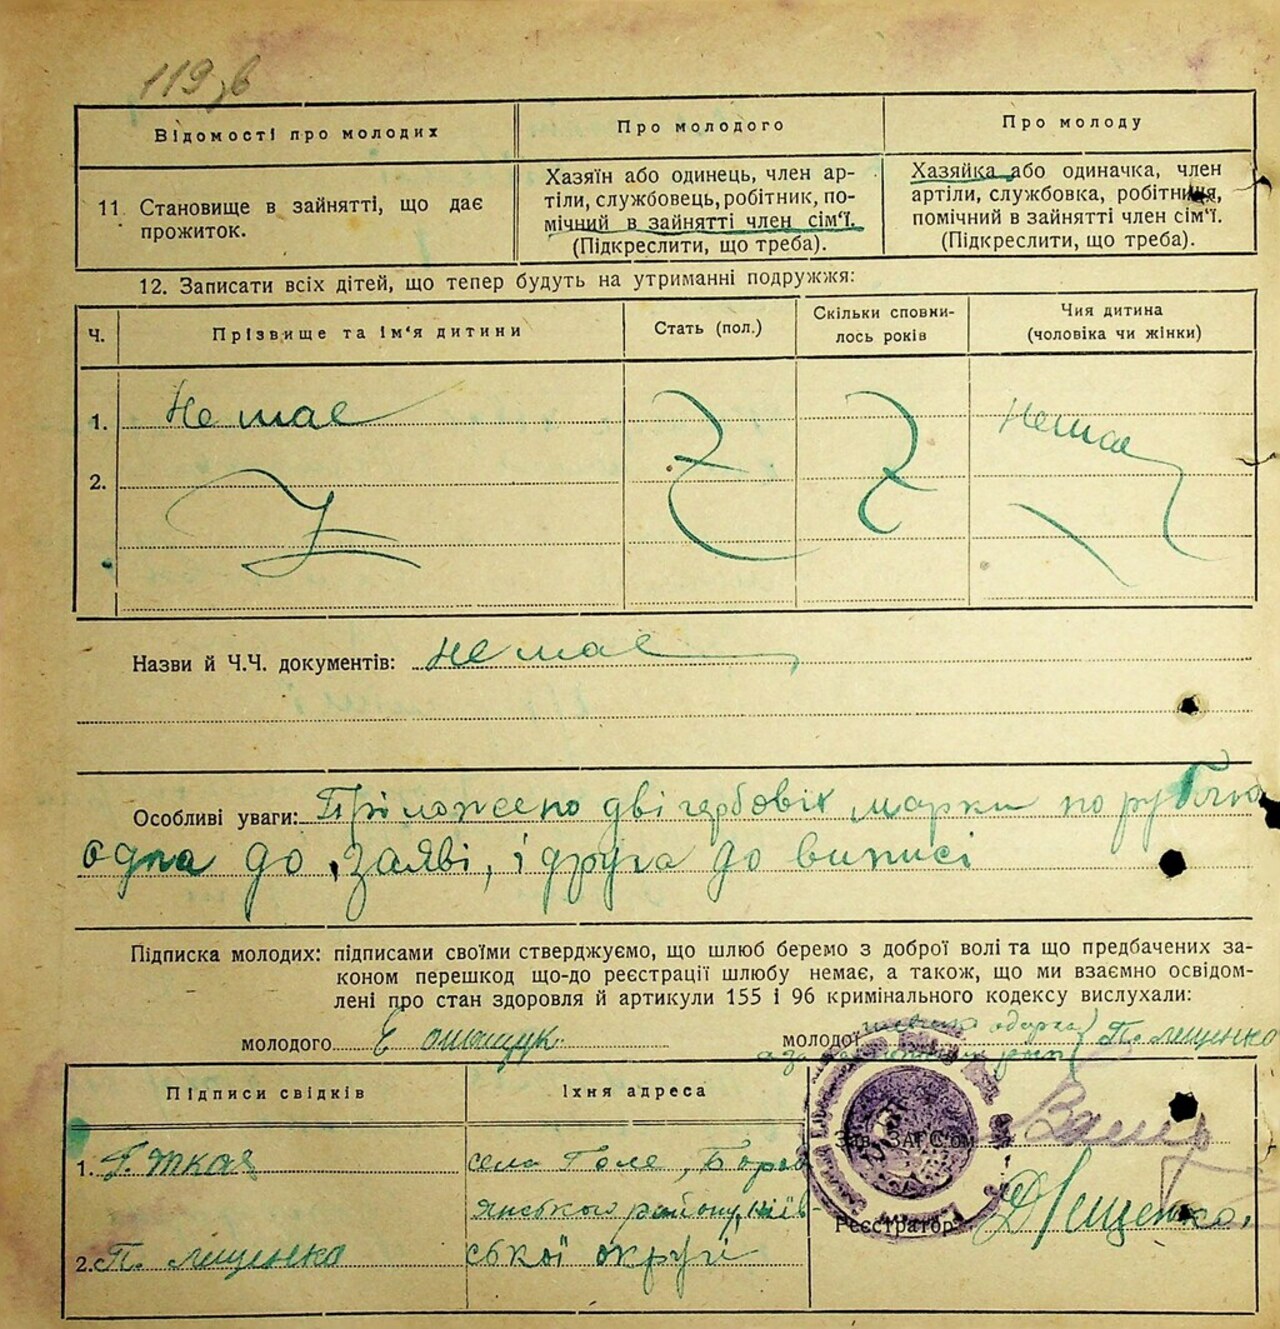 119зв
Відомості про молодих
Про молодого
Про молоду
11. Становище в зайнятті, що дає
прожиток.
Хазяїн або одинець, член ар-
тіли, службовець, робітник, по-
мічний в зайнятті член сім'ї.
(Підкреслити, що треба).
Хазяйка або одиначка, член
артіли, службовка, робітниця,
помічний в зайнятті член сім'ї.
(Підкреслити, що треба).
12. Записати всіх дітей, що тепер будуть на утриманні подружжя:
Ч.
Прізвище та ім'я дитини
Стать (пол.)
Скільки сповни-
лось років
Чия дитина
(чоловіка чи жінки)
1. Не має
Немає
2.
Назви й Ч.Ч. документів: не має
Особливі уваги: Пріложено дві гербовіх марки по рубчю
одна до заяві, і друга до виписі
Підписка молодих: підписами своїми стверджуємо, що шлюб беремо з доброї волі та що предбачених за-
коном перешкод що-до реєстрації шлюбу немає, а також, що ми взаємно освідом-
лені про стан здоровля й артикули 155 і 96 кримінального кодексу вислухали:
молодого Є
молодої П. Лещенко
Підписи свідків
Їхня адреса
1. Г. Ткач
села Голе, Боров
янського району, Київ-
2. П. Лещенко
ської округи
Зав. ЗАГС'ом
Реєстратор Лещенко.